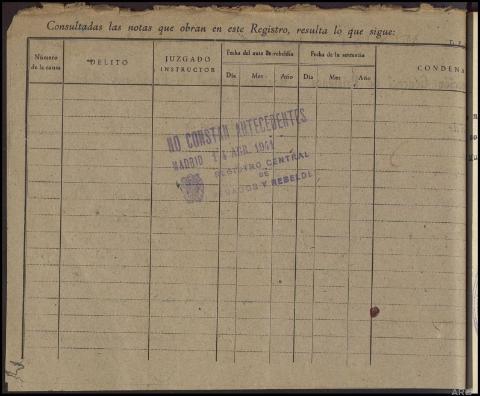 Consultadas las notas que obran en este Registro, resulta lo que sigue:
Número de la causa
DELITO
JUZGADO INSTRUCTOR
Fecha del auto de rebeldía
Día Mes Año
Fecha de la sentencia
Día Mes Año
CONDENA
NO CONSTAN ANTECEDENTES
MADRID 14 AGR. 1941
REGISTRO CENTRAL
DE
Y REBELDE